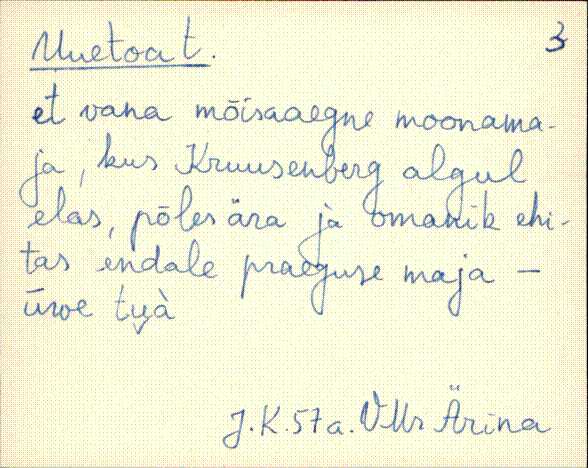 Uuetoa t.
3
et vana mõisaaegne moonama-
ja, kus Kruusenberg algul
elas, põles ära ja omanik ehi-
tas endale praeguse maja –
ūwe
J. K. 57a. VMr Ärina